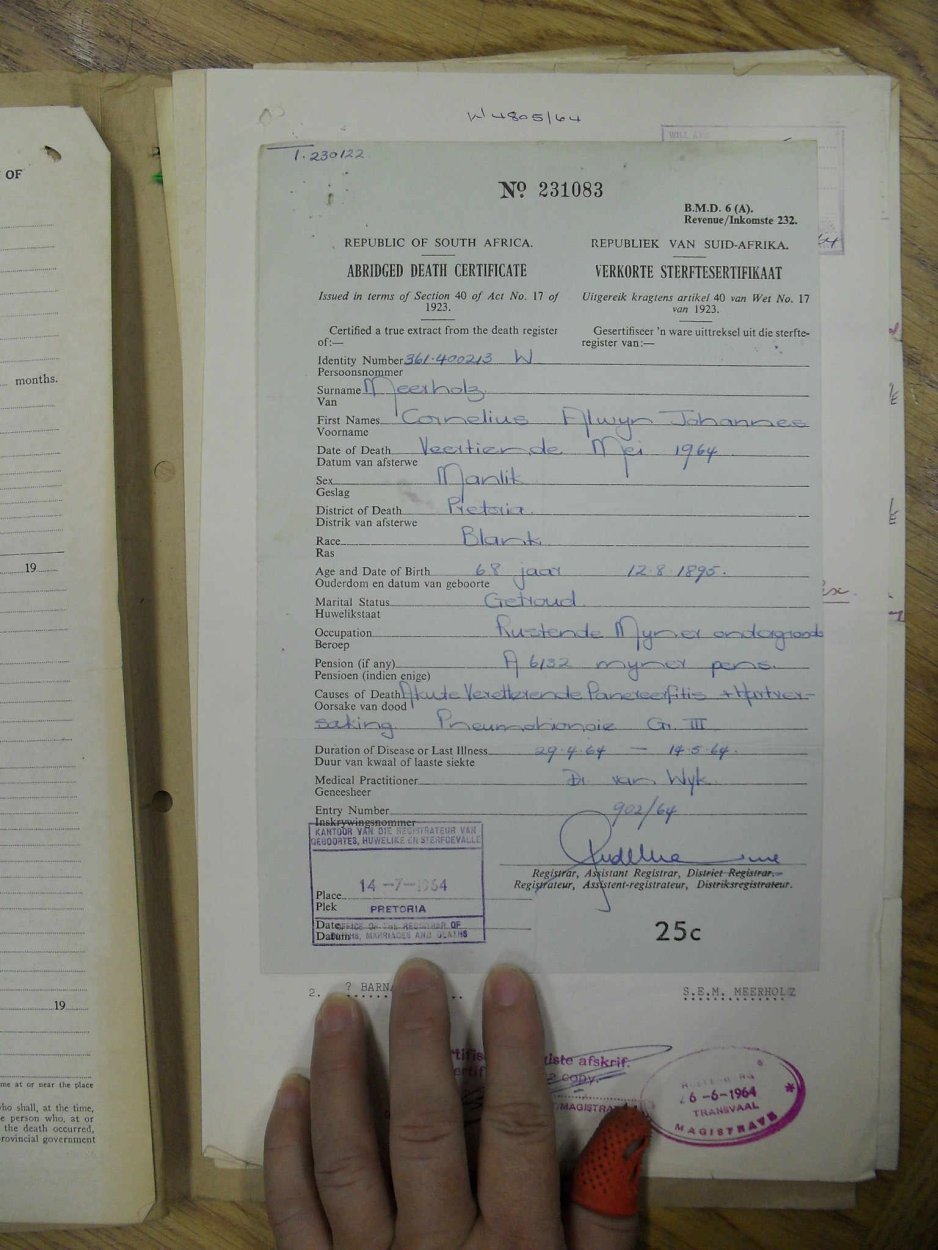 OF
months.
19
19
me at or near the place
who shall, at the time,
e person who, at or
the death occurred,
provincial government
W 4805/64
WILL AND
T. 230122
No 231083
B.M.D. 6 (A).
Revenue/Inkomste 232.
REPUBLIC OF SOUTH AFRICA.
REPUBLIEK VAN SUID-AFRIKA.
ABRIDGED DEATH CERTIFICATE
VERKORTE STERFTESERTIFIKAAT
Issued in terms of Section 40 of Act No. 17 of
1923.
Uitgereik kragtens artikel 40 van Wet No. 17
van 1923.
Certified a true extract from the death register
of:—
Gesertifiseer 'n ware uittreksel uit die sterfte-
register van:—
Identity Number 361·400213 W
Persoonsnommer
Surname Meerholz
Van
First Names Cornelius Alwyn Johannes
Voorname
Date of Death Veertiende Mei 1964
Datum van afsterwe
Sex Manlik
Geslag
District of Death Pretoria.
Distrik van afsterwe
Race Blank
Ras
Age and Date of Birth 68 jaar 12·8·1895.
Ouderdom en datum van geboorte
Marital Status Getroud
Huwelikstaat
Occupation Rustende Myner ondergronds
Beroep
Pension (if any) A 6132 myner pens.
Pensioen (indien enige)
Causes of Death Akute Veretterende + Hartver-
Oorsake van dood
saking. Gr. III
Duration of Disease or Last Illness 29·4·64 — 14·5·64.
Duur van kwaal of laaste siekte
Medical Practitioner Dr van Wyk.
Geneesheer
Entry Number 902/64
Inskrywingsnommer
KANTOOR VAN DIE REGISTRATEUR VAN
GEBOORTES, HUWELIKE EN STERFGEVALLE
Registrar, Assistant Registrar, District Registrar.
Registrateur, Assistent-registrateur, Distriksregistrateur.
14 -7-1964
Place
Plek
PRETORIA
Date
Datum
OFFICE OF THE REGISTRAR OF
BIRTHS, MARRIAGES AND DEATHS
25c
2. ? BARNA
S.E.M. MEERHOLZ
iste afskrif.
copy.
MAGISTRA
6 -6-1964
TRANSVAAL
MAGISTRATE